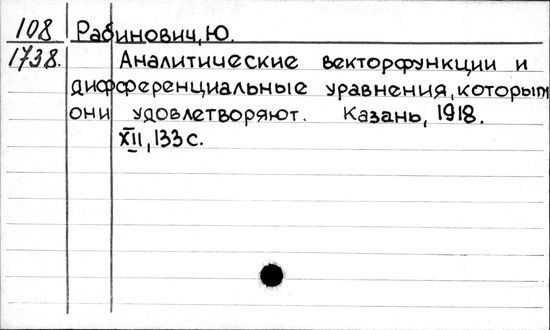 108 Рабинович, Ю.
1738. Аналитические векторфункции и
дифференциальные уравнения, которым
они удовлетворяют. Казань, 1918.
XII, 133 с.